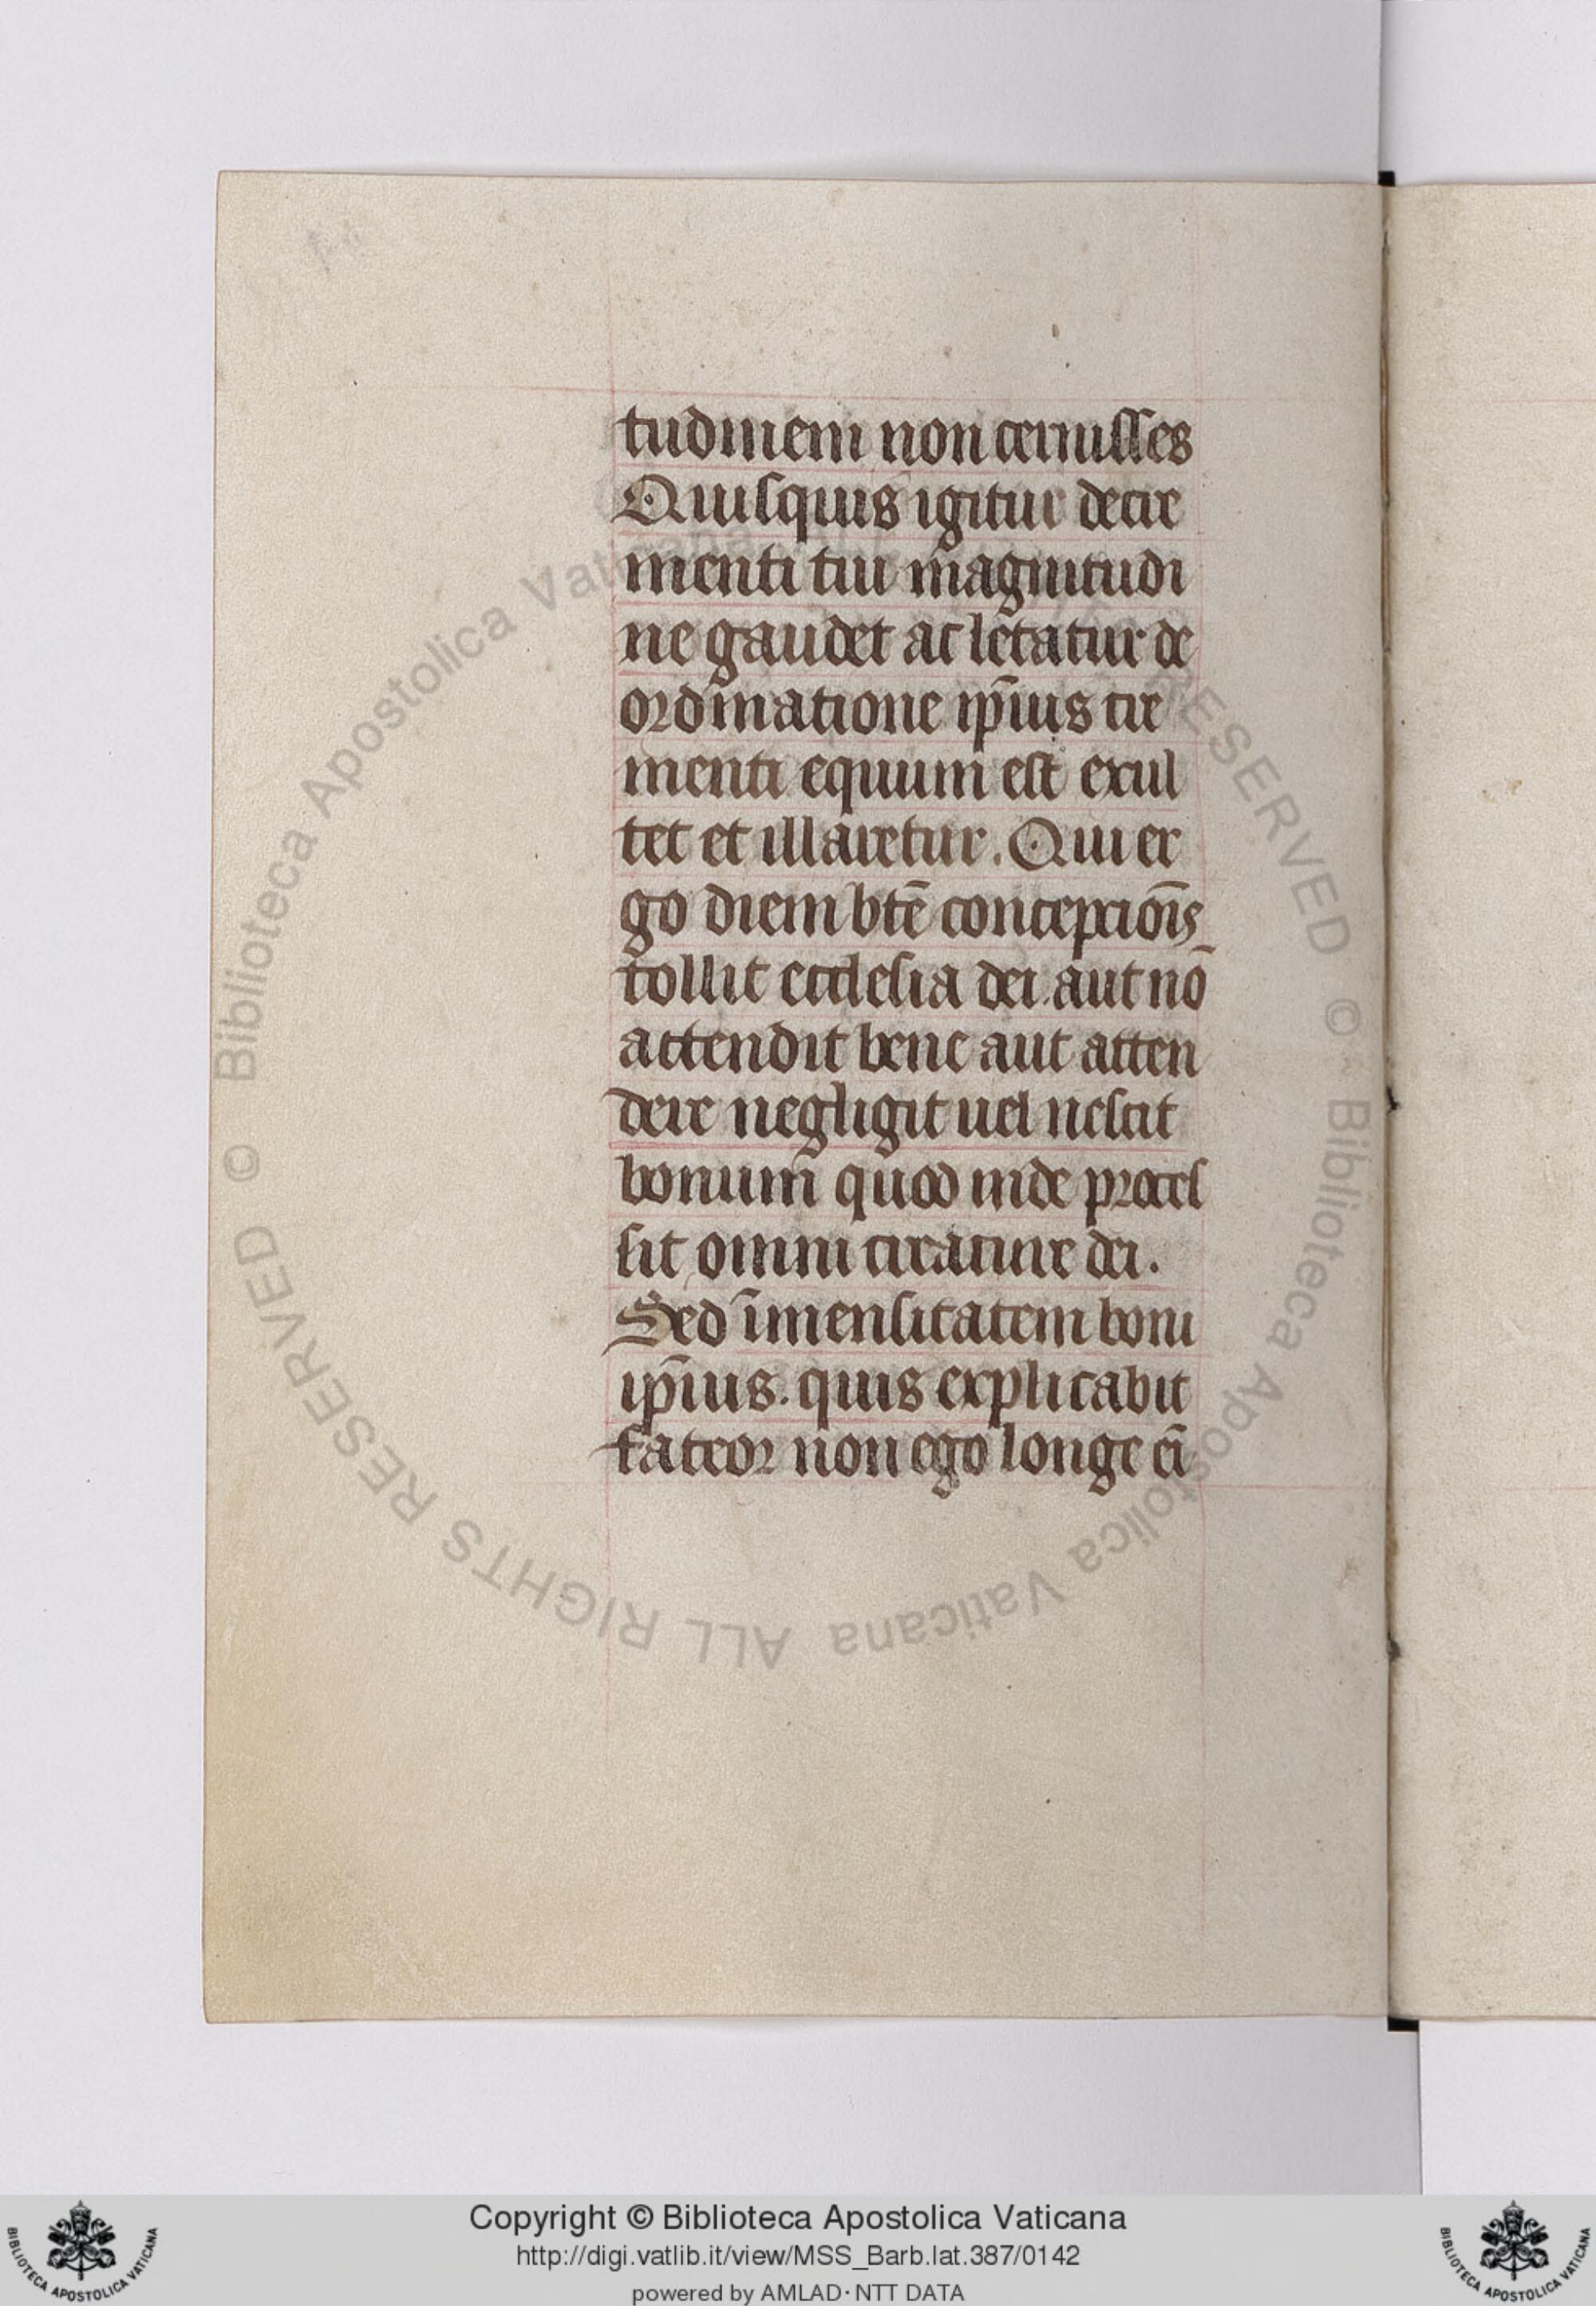 tudinem non cernisses
Quisquis igitur de cre
menti tui magnitudi
ne gaudet ac letatur de
ordinatione ip̄ius cre
menti equum est exul
tet et illaretur. Qui er
go diem btē concepcio̅is
tollit ecclesia dei aut nō
attendit bene aut atten
dere negligit uel nescit
bonum quod inde proces
sit omni creature dei.
Sed īmensitatem boni
ip̄ius. quis explicabit
fateor non ego longe ei̅
Copyright © Biblioteca Apostolica Vaticana
http://digi.vatlib.it/view/MSS_Barb.lat.387/0142
powered by AMLAD · NTT DATA
BIBLIOTECA APOSTOLICA VATICANA
BIBLIOTECA APOSTOLICA VATICANA
© Biblioteca Apostolica Vaticana ALL RIGHTS RESERVED
© Biblioteca Apostolica Vaticana ALL RIGHTS RESERVED